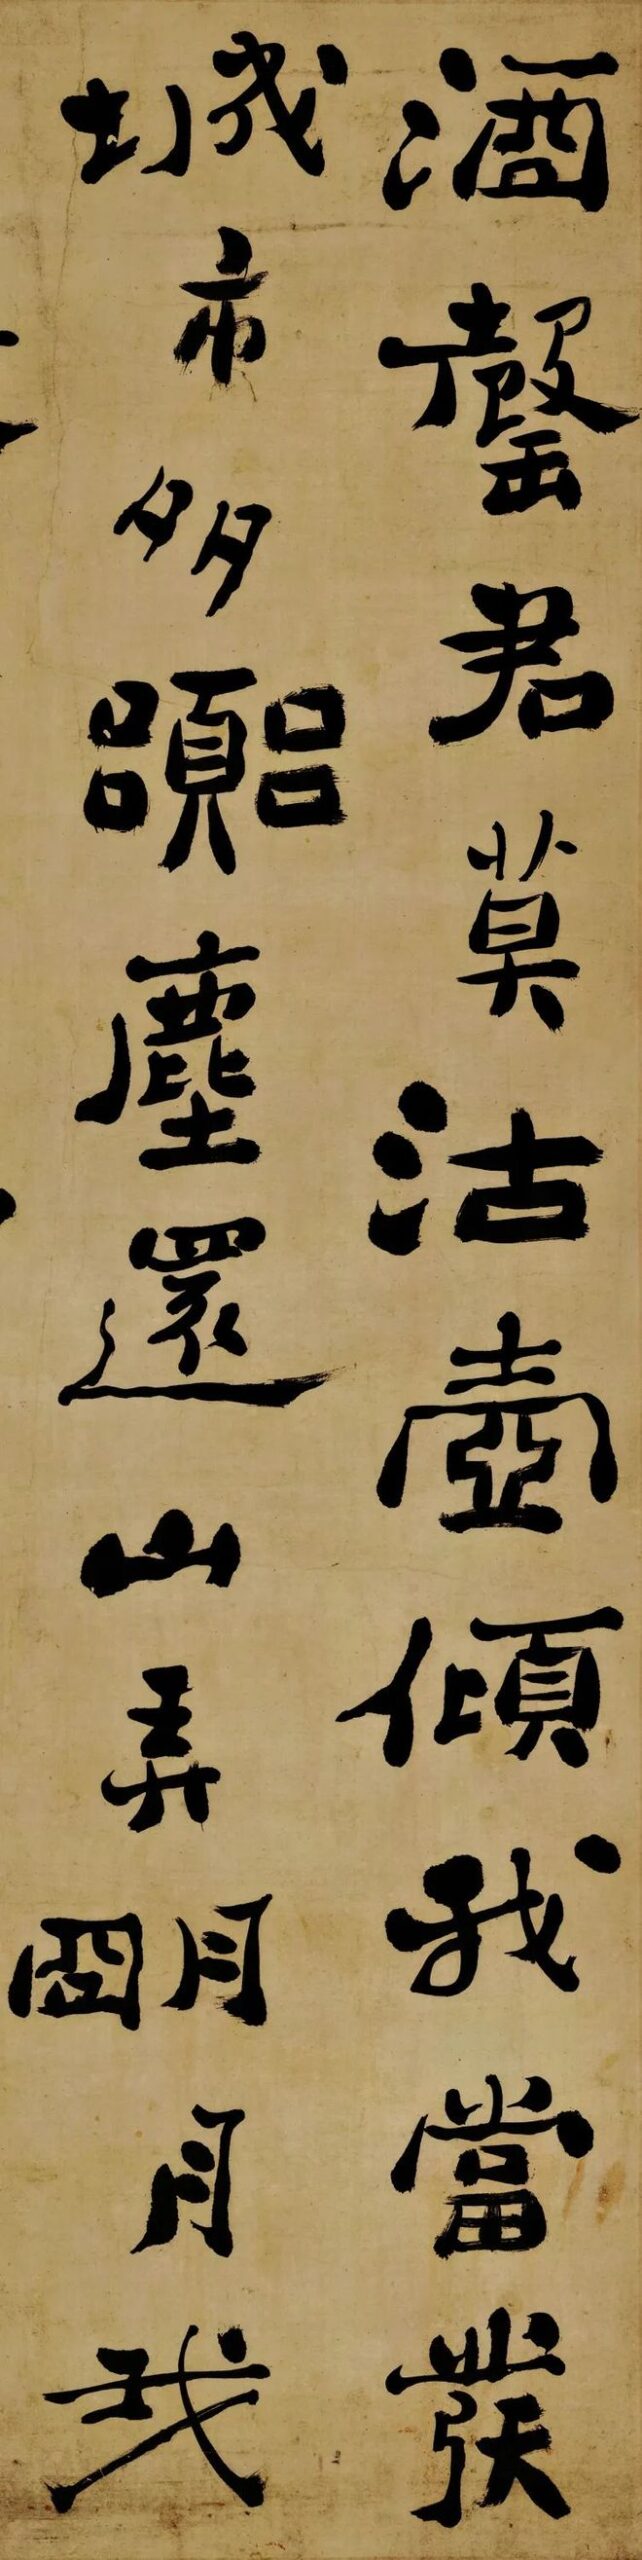 酒罄君莫沽壺傾我當發
城市多囂塵還山弄明月